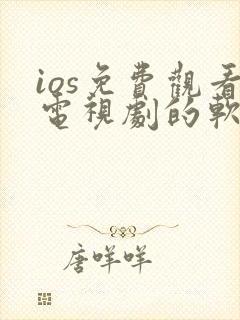 ios免費觀看
電視劇的軟
唐咩咩